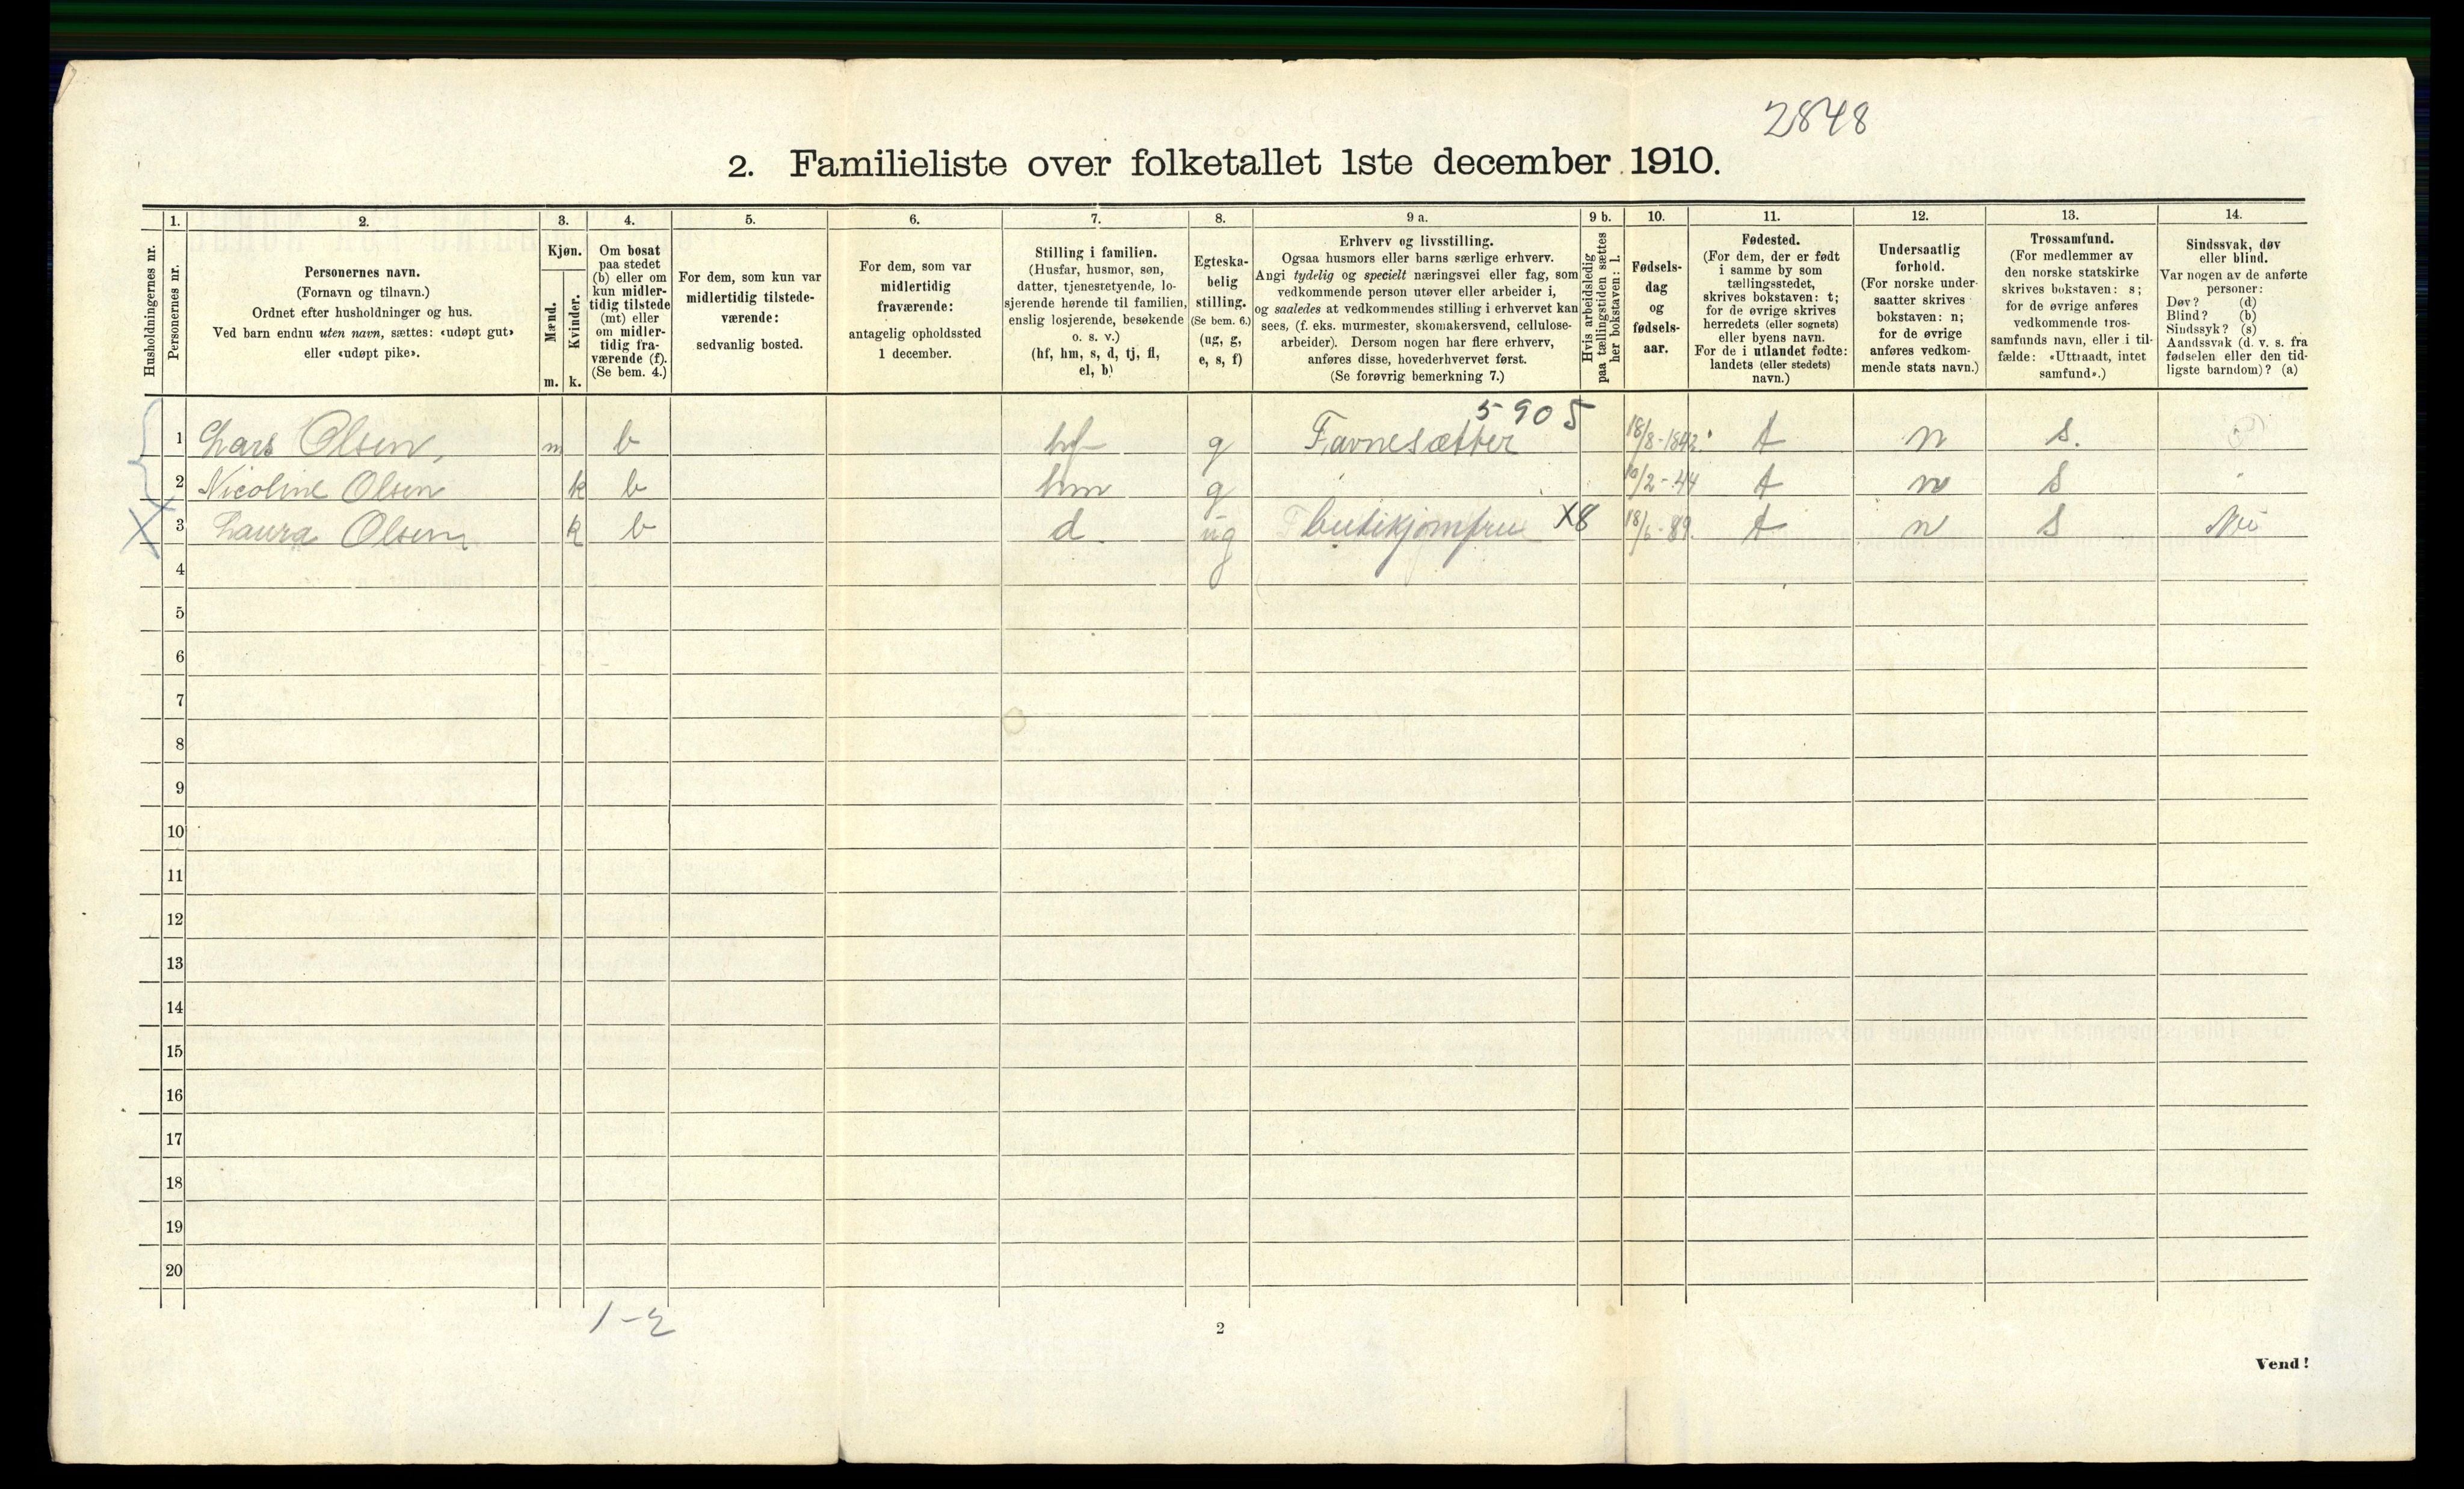 2848
2. Familieliste over folketallet 1ste december 1910.
Husholdningernes nr.
1.
Personernes nr.
2.
Personernes navn.
(Fornavn og tilnavn.)
Ordnet efter husholdninger og hus.
Ved barn endnu uten navn, sættes: «udøpt gut»
eller «udøpt pike».
3.
Kjøn.
Mænd.
m.
Kvinder.
k.
4.
Om bosat
paa stedet
(b) eller om
kun midler-
tidig tilstede
(mt) eller
om midler-
tidig fra-
værende (f).
(Se bem. 4.)
5.
For dem, som kun var
midlertidig tilstede-
værende:
sedvanlig bosted.
6.
For dem, som var
midlertidig
fraværende:
antagelig opholdssted
1 december.
7.
Stilling i familien.
(Husfar, husmor, søn,
datter, tjenestetyende, lo-
sjerende hørende til familien,
enslig losjerende, besøkende
o. s. v.)
(hf, hm, s, d, tj, fl,
el, b)
8.
Egteska-
belig
stilling.
(Se bem. 6.)
(ug, g,
e, s, f)
9 a.
Erhverv og livsstilling.
Ogsaa husmors eller barns særlige erhverv.
Angi tydelig og specielt næringsvei eller fag, som
vedkommende person utøver eller arbeider i,
og saaledes at vedkommendes stilling i erhvervet kan
sees, (f. eks. murmester, skomakersvend, cellulose-
arbeider). Dersom nogen har flere erhverv,
anføres disse, hovederhvervet først.
(Se forøvrig bemerkning 7.)
9 b.
Hvis arbeidsledig
paa tællingstiden sættes
her bokstaven: l.
10.
Fødsels-
dag
og
fødsels-
aar.
11.
Fødested.
(For dem, der er født
i samme by som
tællingsstedet,
skrives bokstaven: t;
for de øvrige skrives
herredets (eller sognets)
eller byens navn.
For de i utlandet fødte:
landets (eller stedets)
navn.)
12.
Undersaatlig
forhold.
(For norske under-
saatter skrives
bokstaven: n;
for de øvrige
anføres vedkom-
mende stats navn.)
13.
Trossamfund.
(For medlemmer av
den norske statskirke
skrives bokstaven: s;
for de øvrige anføres
vedkommende tros-
samfunds navn, eller i til-
fælde: «Uttraadt, intet
samfund».)
14.
Sindssvak, døv
eller blind.
Var nogen av de anførte
personer:
Døv? (d)
Blind? (b)
Sindssyk? (s)
Aandssvak (d. v. s. fra
fødselen eller den tid-
ligste barndom)? (a)
5905
1 Lars Olsen, m b hf g Favnesætter 18/8-1842. t n s.
2 Nicoline Olsen k b hm g 10/2-44 t n s
3 Laura Olsen k b d ug butikjomfru X8 18/6-89. t n s Nei
4
5
6
7
8
9
10
11
12
13
14
15
16
17
18
19
20
1-2
2
Vend!